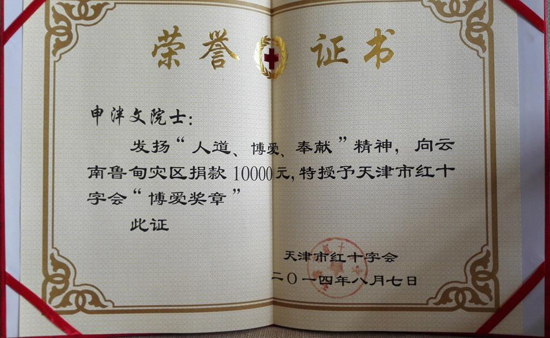 荣誉证书
申泮文院士：
发扬“人道、博爱、奉献”精神，向云
南鲁甸灾区捐款10000元，特授予天津市红十
字会“博爱奖章”
此证
天津市红十字会
二〇一四年八月七日